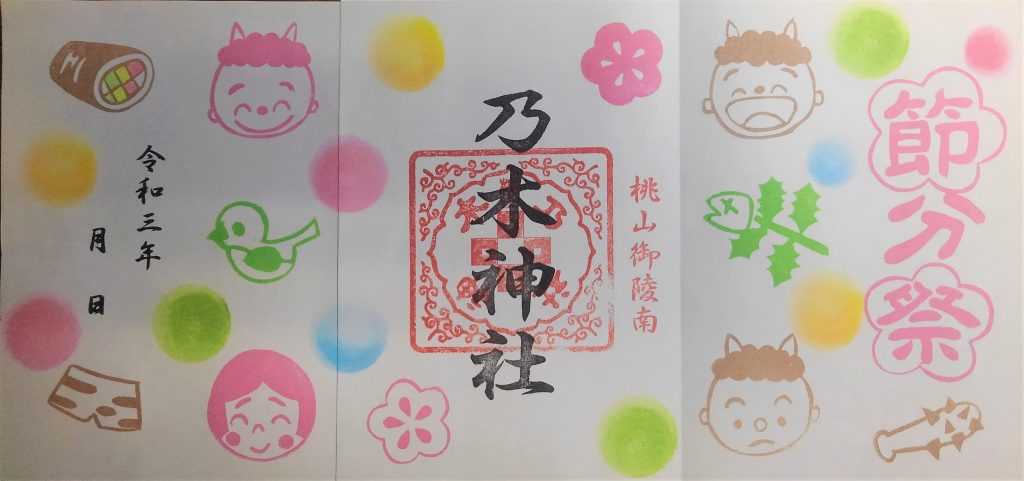 節分祭
桃山御陵南
乃木神社
令和三年
月 日